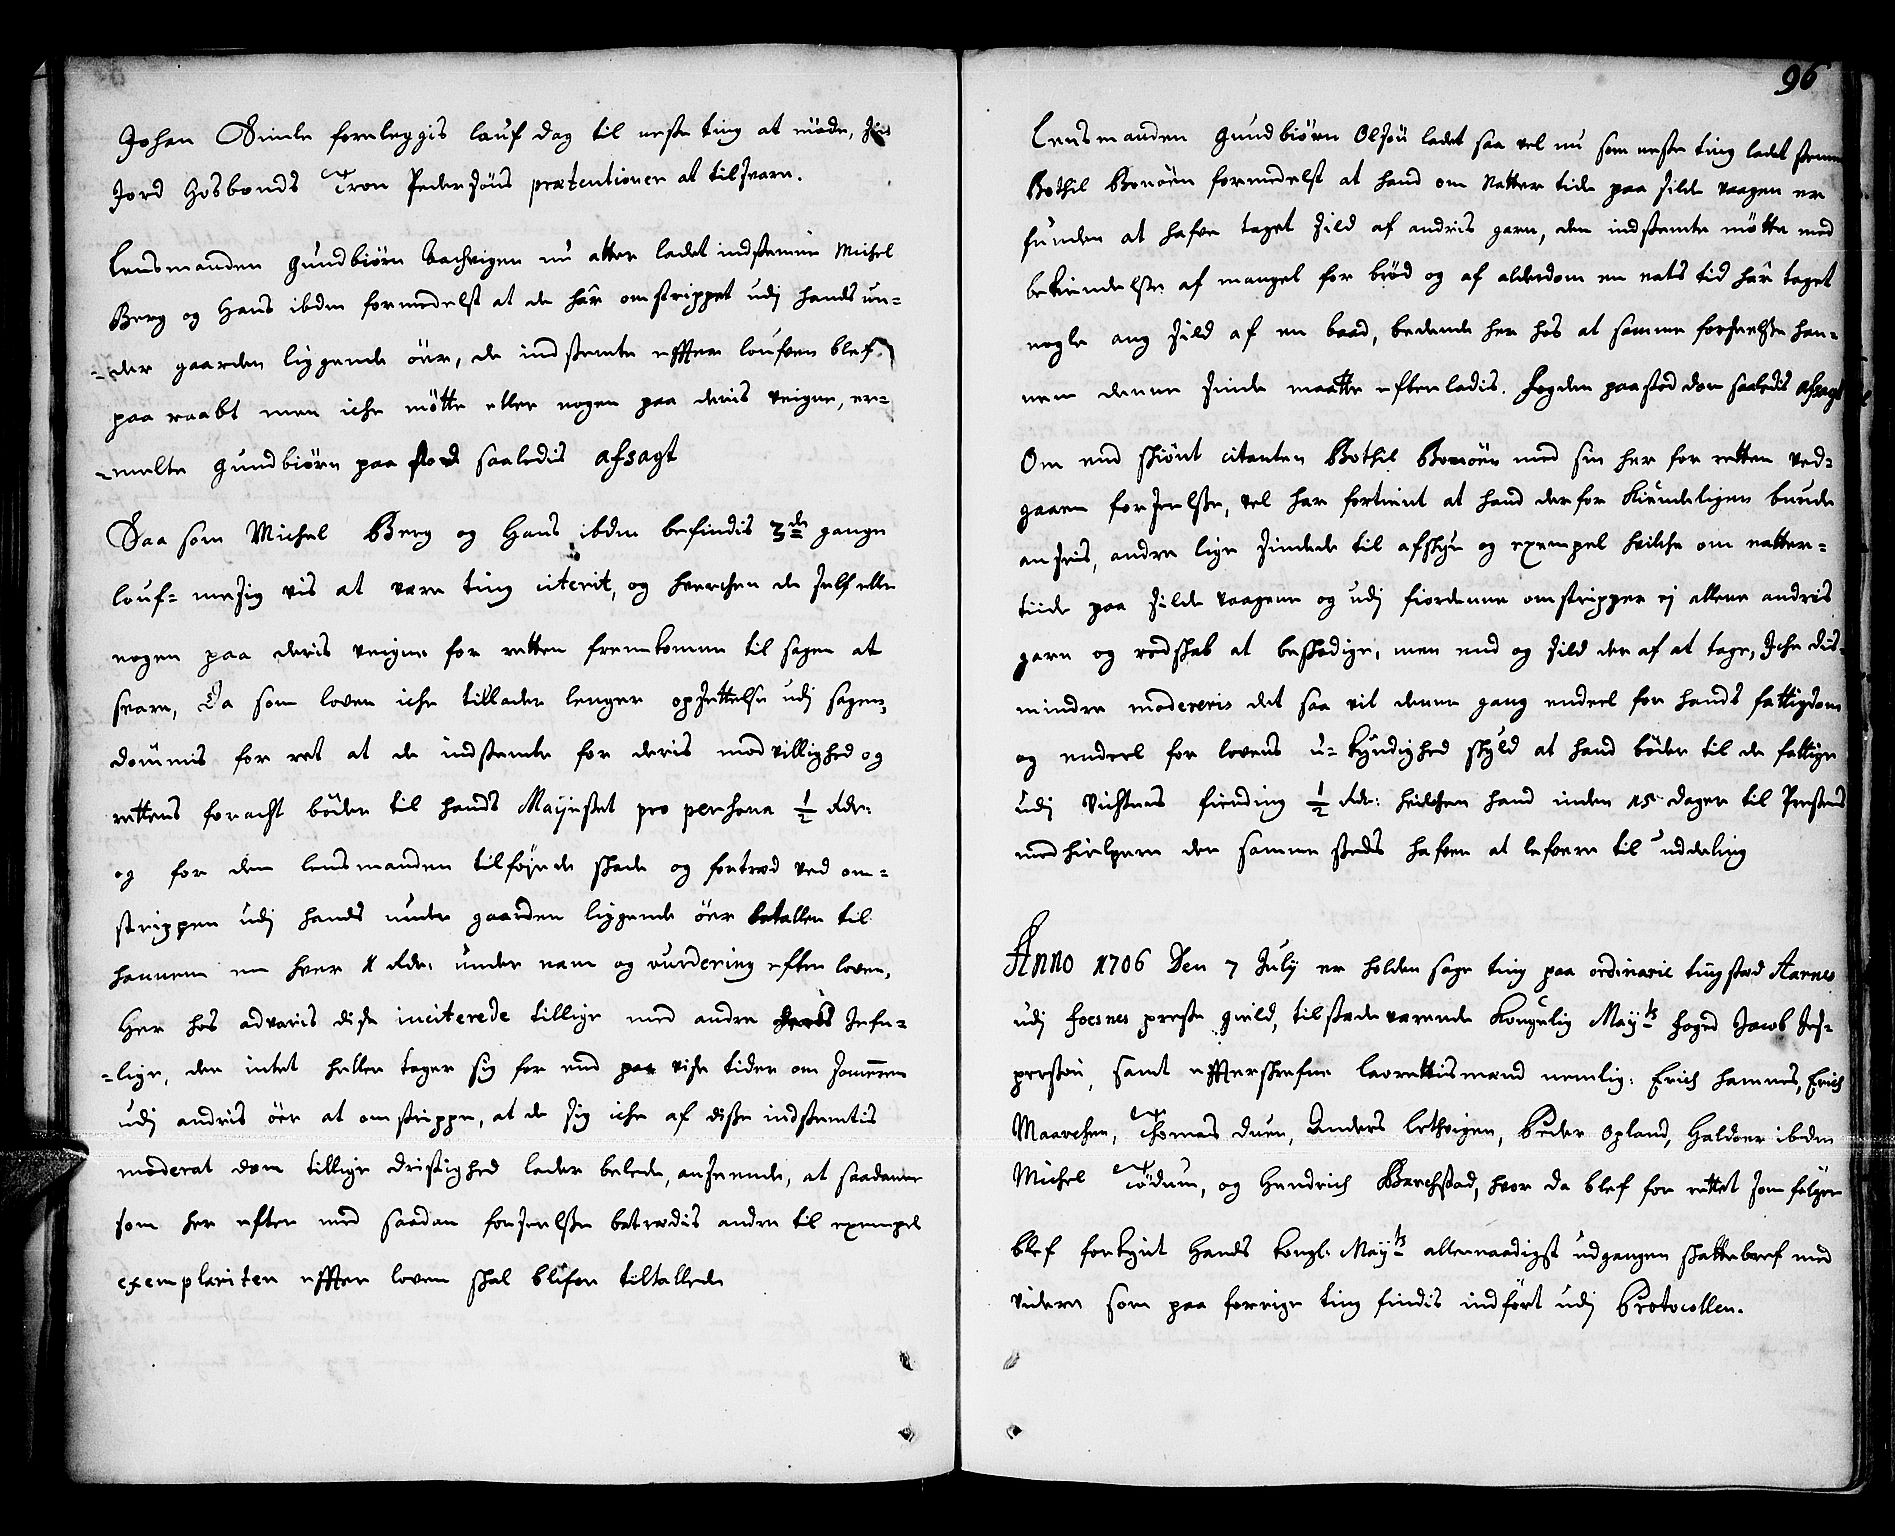 Johan Sinele foreleggis lauf dag til neste ting at møde, Jens
Jord Hosbonds Tron Pedersøns prætentioner at tilsvare.
Lensmanden Gundbiørn bachvigen nu atter ladet indstemne Michel
Berg og Hans ibdm formedelst at de har omstrippet udj hands un-
der gaarden liggende öer, de indstemte effter loufven blef
paa raabt men iche møtte eller nogen paa deris veigne, er-
melte Gundbiørn paa stod saaledis afsagt
Saa som Michel Berg og Hans ibdm befindis 3de gange
louf-mesig vis at være ting citerit, og hverchen de self eller
nogen paa deris veigne for retten fremkomme til sagen at
svare, Da som loven iche tillader lenger opsettelse udj sagen,
dömmis for ret at de indstemte for deris modvillighed og
rettens foracht böder til hands Mayestet pro pershona ½ Rdr:
og for den lensmanden tilføyede skade og fortræd ved om-
strippen udj hands under gaarden liggende öer betaller til
hannem en hver 1 Rdr: under nam og vurdering efter loven,
Her hos advaris dise inciterede tillige med andre deris Jefn-
lige, der intet heller tager sig for end paa vise tider om Sommeren
udj andris öer at omstrippe, at de sig iche af disse indstemtis
moderat dom tillige dristighed lader belede, anseende, at saadanne
som her efter med saadan forseelsse betrædis andre til exempel
exemplariter effter loven skal blifve tiltallede
96
Lensmanden Gundbiørn Olsön ladet saa vel nu som neste ting ladet stemne
Bothil Bonöen formedelst at hand om Natter tide paa silde vaagen er
funden at hafve taget sild af andris garn, den indstemte møtte med
bekiendelsse af mangel for brød og af alderdom en nats tid har taget
nogle ang sild af en baad, bedende her hos at samme forseelsse han-
nem denne sinde maatte efterladis. Fogden paastod dom saaledis afsagt
Om end skiönt citanten Bothil Bonöen med sin her for retten ved-
gaaen forseelsse, vel har fortient at hand derfor kiendeligen burde
anseis, andre lige sindede til afskye og exempel hvilche om natter-
tiide paa silde vaagene og udj fiordenne omstripper ej allene andris
garn og redskab at beskadige, men end og sild der af at tage, Iche dis-
mindre modereris det saa vit denne gang endeel for hands fattigdom
og endeel for lovens u-kyndighed skyld at hand böder til de fattige
udj Vichsnes fierding ½ Rdr: hvilchen hand inden 15 dager til Prestens
medhielpere der samme steds hafver at lefvere til uddeling
Anno 1706 Den 7 July er holden sage ting paa ordinarie tingsted Aarnes
udj Foesnes preste gield, tilstede værende Kongelig Mayts foged Jacob Jes-
persøn, samt effterskrefne laurettismend nemlig: Erich Hamnes, Erich
Maarchen, Thomas Duen, Anders Lethvigen, Peder Opland, Haldoer ibdm
Michel Tödum, og Hendrich Barchstad, hvor da blef for rettet som følger
blef forkynt Hands kongl: Mayts allernaadigst udgangen skattebref med
videre som paa forrige ting findis indfört udj Protocollen.